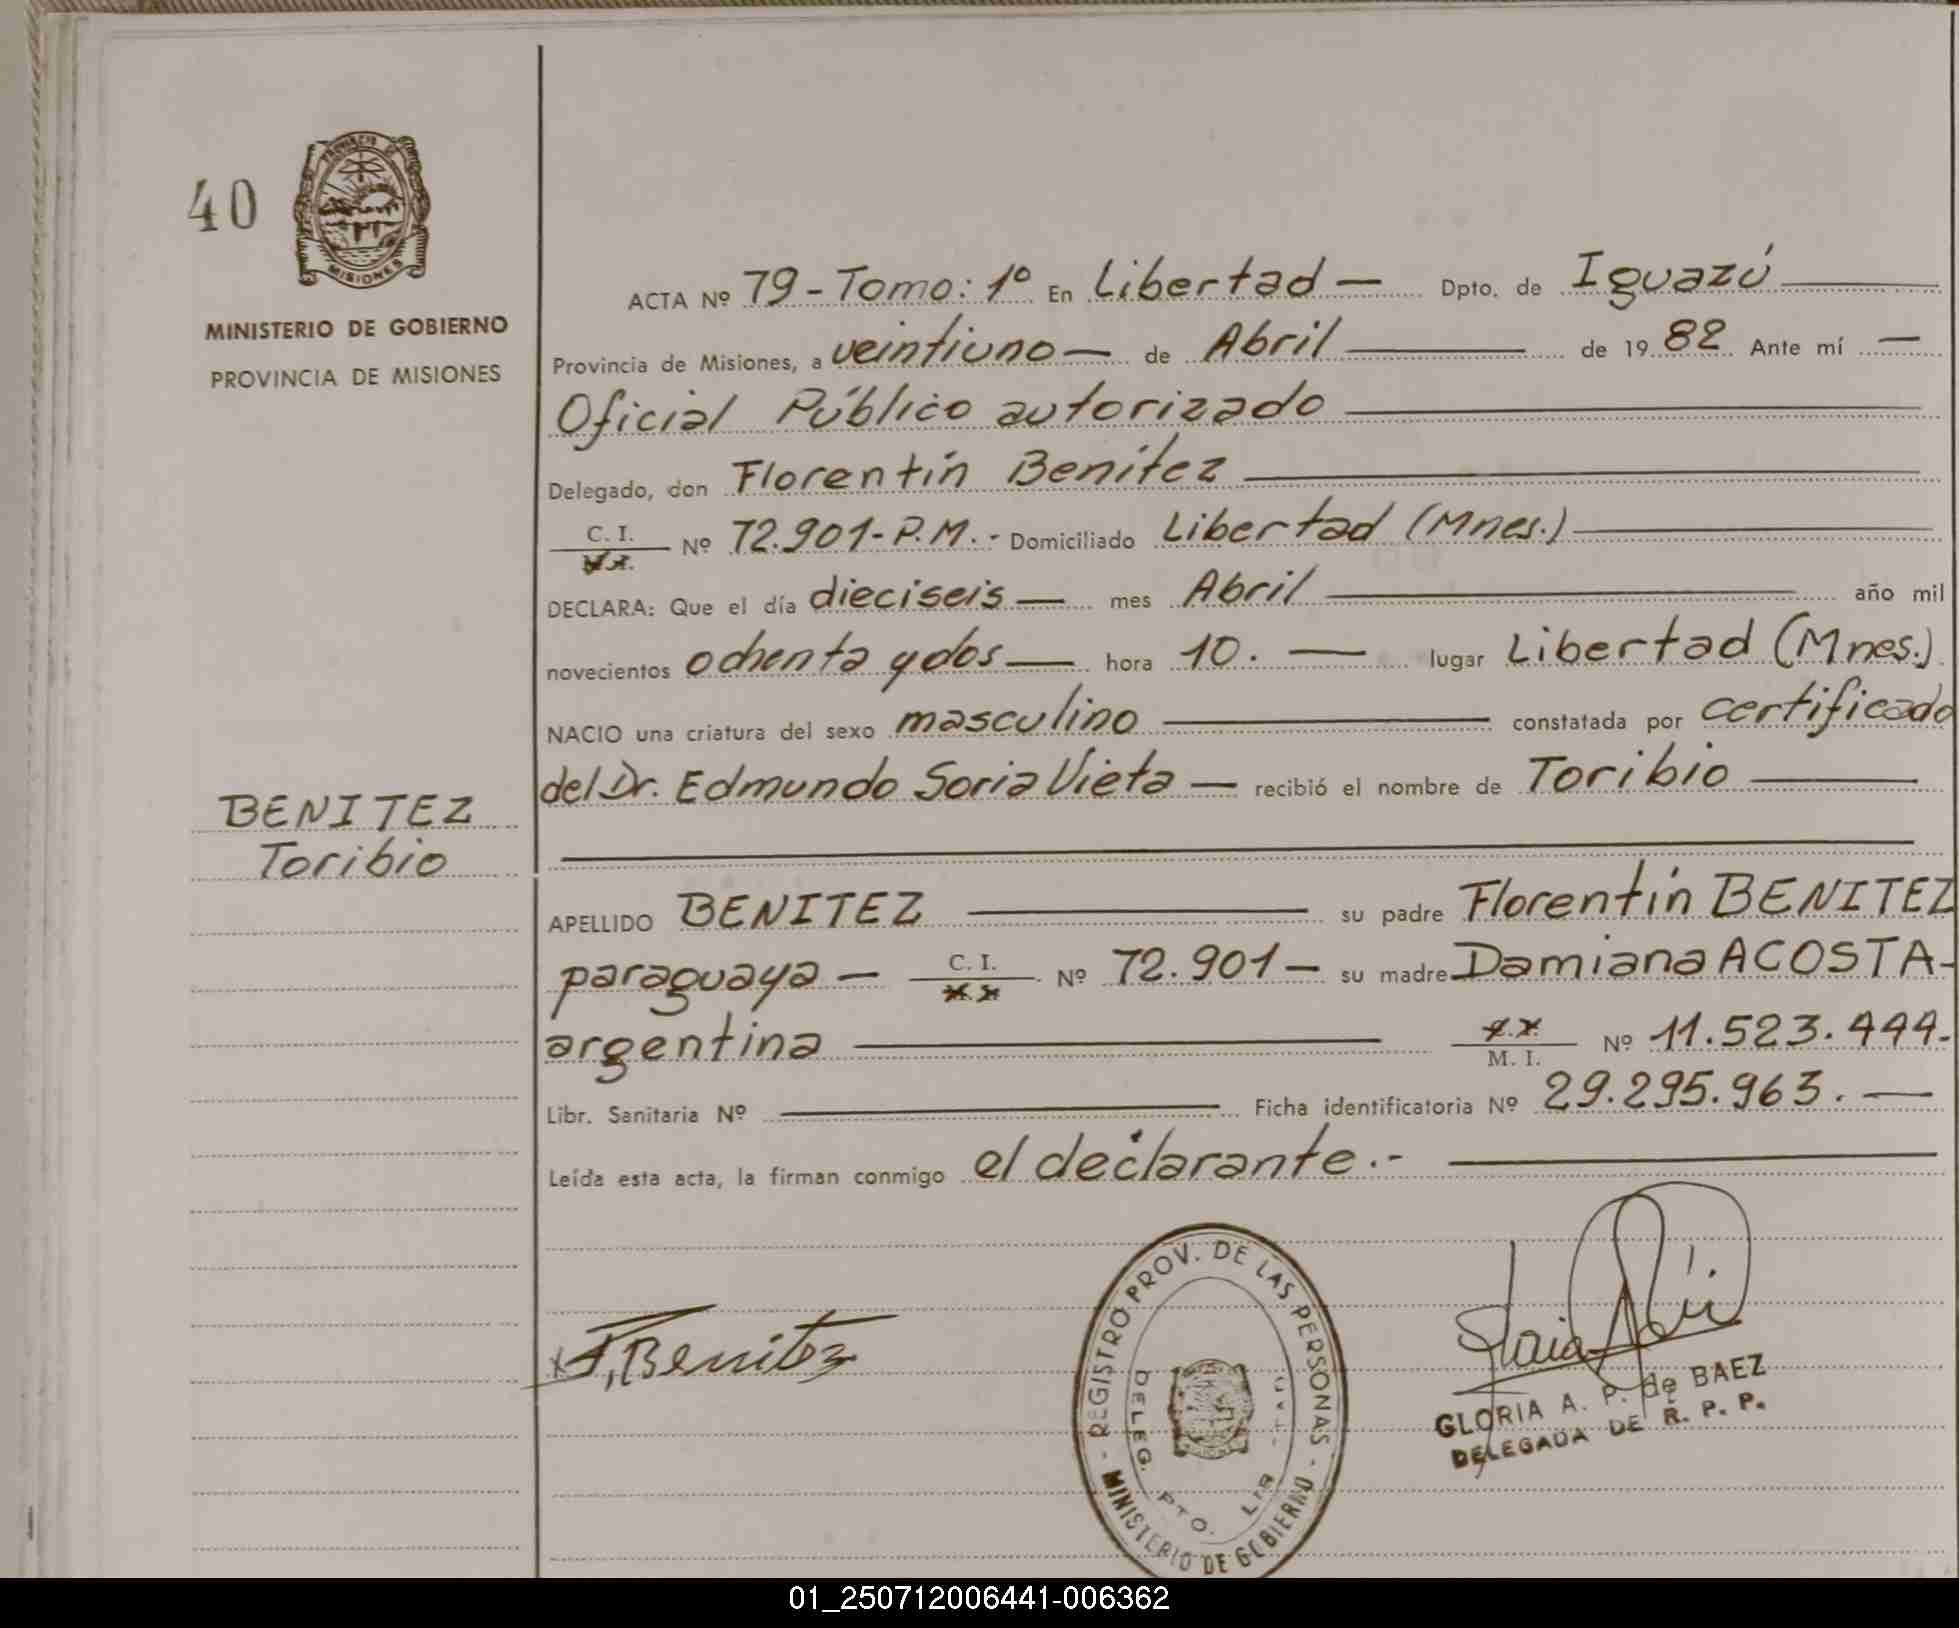 40
PROVINCIA DE
MISIONES
MINISTERIO DE GOBIERNO
PROVINCIA DE MISIONES
BENITEZ
Toribio
ACTA Nº 79 - Tomo: 1º En Libertad — Dpto. de Iguazú
Provincia de Misiones, a veintiuno — de Abril — de 19 82 Ante mí —
Oficial Público autorizado
Delegado, don Florentín Benítez
C. I. Nº 72.901 - P.M. - Domiciliado Libertad (Mnes.)
DECLARA: Que el día dieciseis — mes Abril — año mil
novecientos ochenta y dos — hora 10. — lugar Libertad (Mnes.)
NACIO una criatura del sexo masculino — constatada por certificado
del Dr. Edmundo Soria Vieta — recibió el nombre de Toribio
APELLIDO BENITEZ — su padre Florentín BENITEZ
paraguaya — C. I. Nº 72.901 — su madre Damiana ACOSTA -
argentina — M. I. Nº 11.523.444.
Libr. Sanitaria Nº — Ficha identificatoria Nº 29.295.963. —
Leída esta acta, la firman conmigo el declarante.-
F. Benitez
REGISTRO PROV. DE LAS PERSONAS - MINISTERIO DE GOBIERNO -
DELEG.
PTO.
GLORIA A. P. de BAEZ
DELEGADA DE R. P. P.
01_250712006441-006362